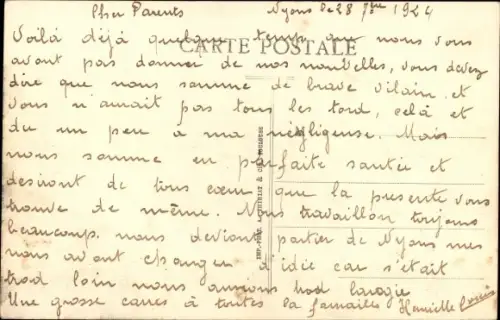 Cher Parents
Nyons le 28 1924
CARTE POSTALE
Voilà déjà quelque temp que nous vous
avont pas donner de nos nouvelles, vous devez
dire que nous somme de brave vilain et
vous n'aurait pas tous les tord, celà et
du un peu à ma négligeuse. Mais
nous somme en parfaite santée et
desiront de tous cœur que la presente vous
trouve de même. Nous travaillon toujours
beaucoup. nous deviont partier de Nyons mes
nous avont changer d'idée car s'etait
trod loin nous aurions trod
Une grosse carres à toutes la familles Henriette Louis